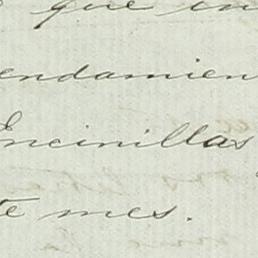 que en
endamien
Encinillas
te mes.